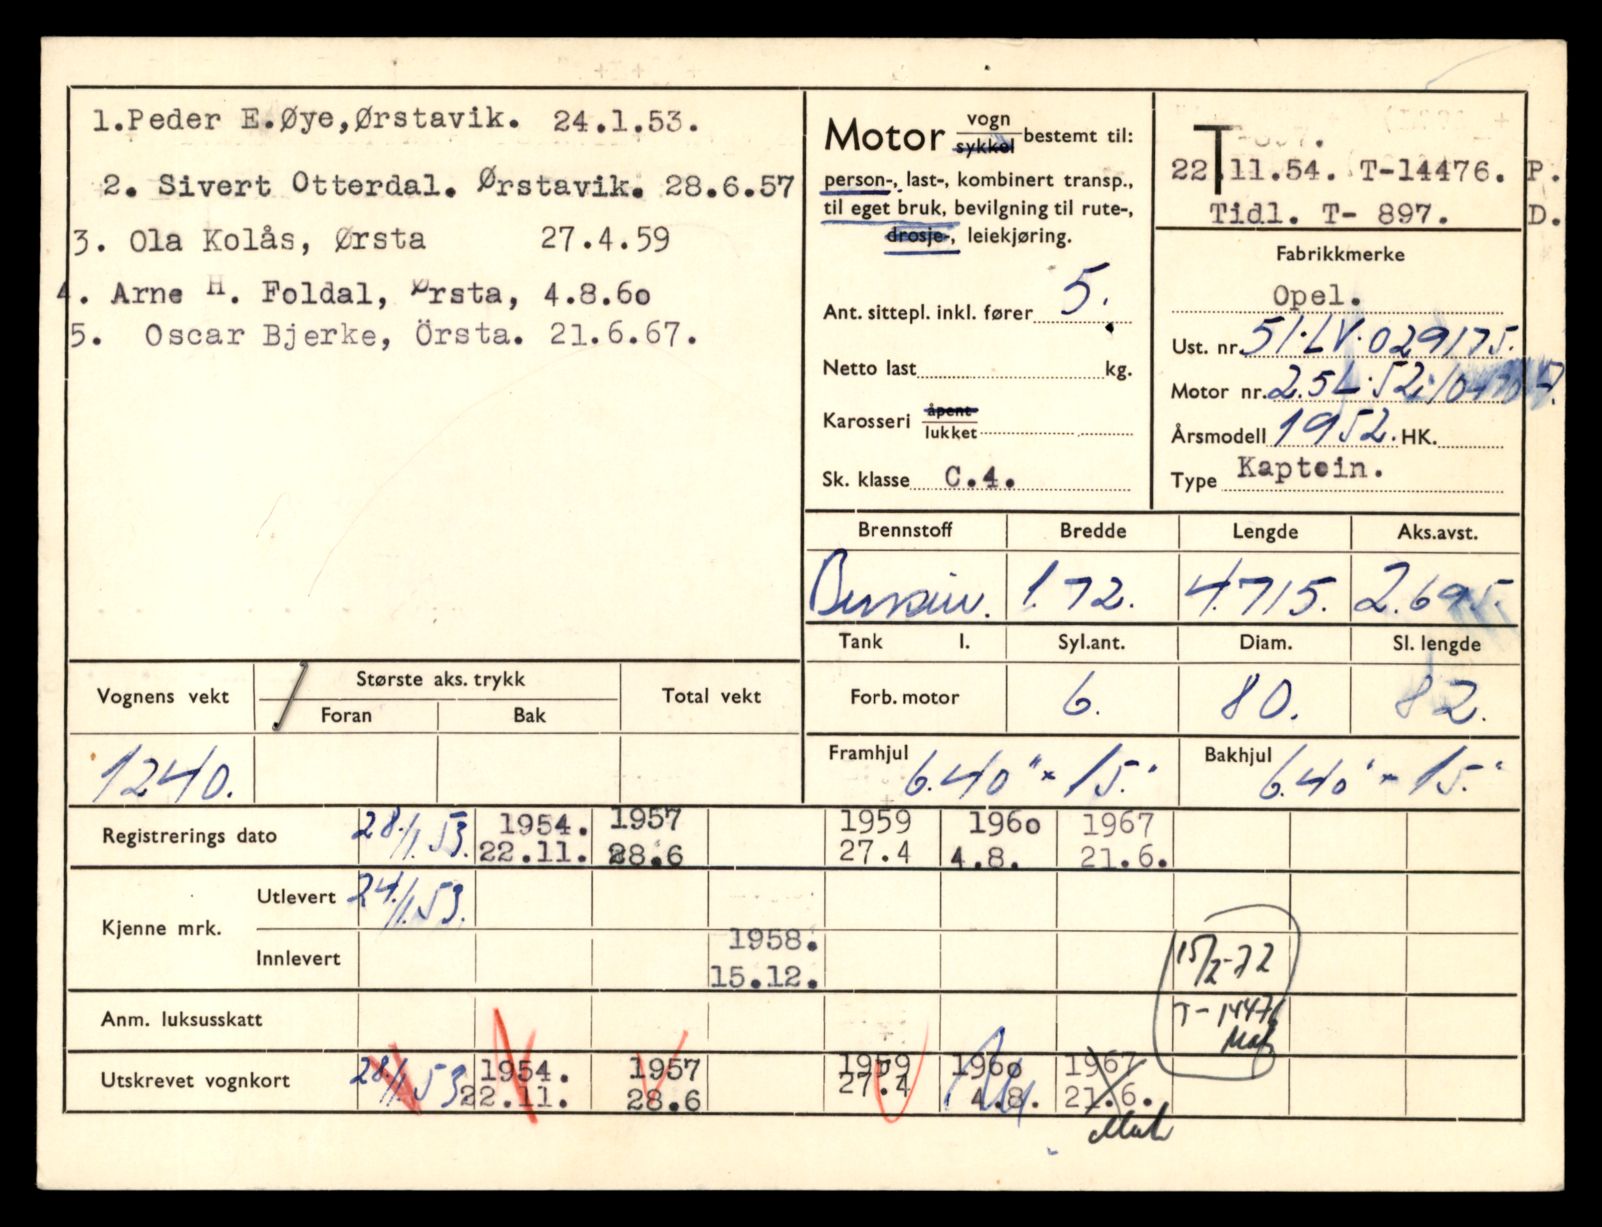 1.Peder E.Øye,Ørstavik. 24.1.53.
2. Sivert Otterdal. Ørstavik. 28.6.57
3. Ola Kolås, Ørsta 27.4.59
4. Arne H. Foldal, Ørsta, 4.8.60
5. Oscar Bjerke, Örsta. 21.6.67.
Motor vogn sykkel bestemt til:
person-, last-, kombinert transp.,
til eget bruk, bevilgning til rute-,
drosje-, leiekjøring.
Ant. sittepl. inkl. fører 5.
Netto last kg.
Karosseri åpent lukket
Sk. klasse C.4.
T -897.
22.11.54. T-14476. P.
Tidl. T- 897. D.
Fabrikkmerke
Opel.
Ust. nr. 51.LV.029175.
Motor nr. 2.5L.52.
Årsmodell 1952. HK.
Type Kaptein.
Brennstoff Bredde Lengde Aks.avst.
Bensin. 1.72. 4.715. 2.695.
Tank l. Syl.ant. Diam. Sl. lengde
Forb. motor 6. 80. 82.
Framhjul 6.40" x 15." Bakhjul 6.40" x 15."
Vognens vekt Største aks. trykk Total vekt
Foran Bak
1240.
Registrerings dato 28./1.53. 1954. 22.11. 1957 28.6 1959 27.4 1960 4.8. 1967 21.6.
Kjenne mrk. Utlevert 24./1.53.
Innlevert 1958. 15.12. 15/2-72
Anm. luksusskatt T-14476
Utskrevet vognkort 28./1.53 1954. 22.11. 1957 28.6 1959 27.4 1960 4.8. 1967 21.6.